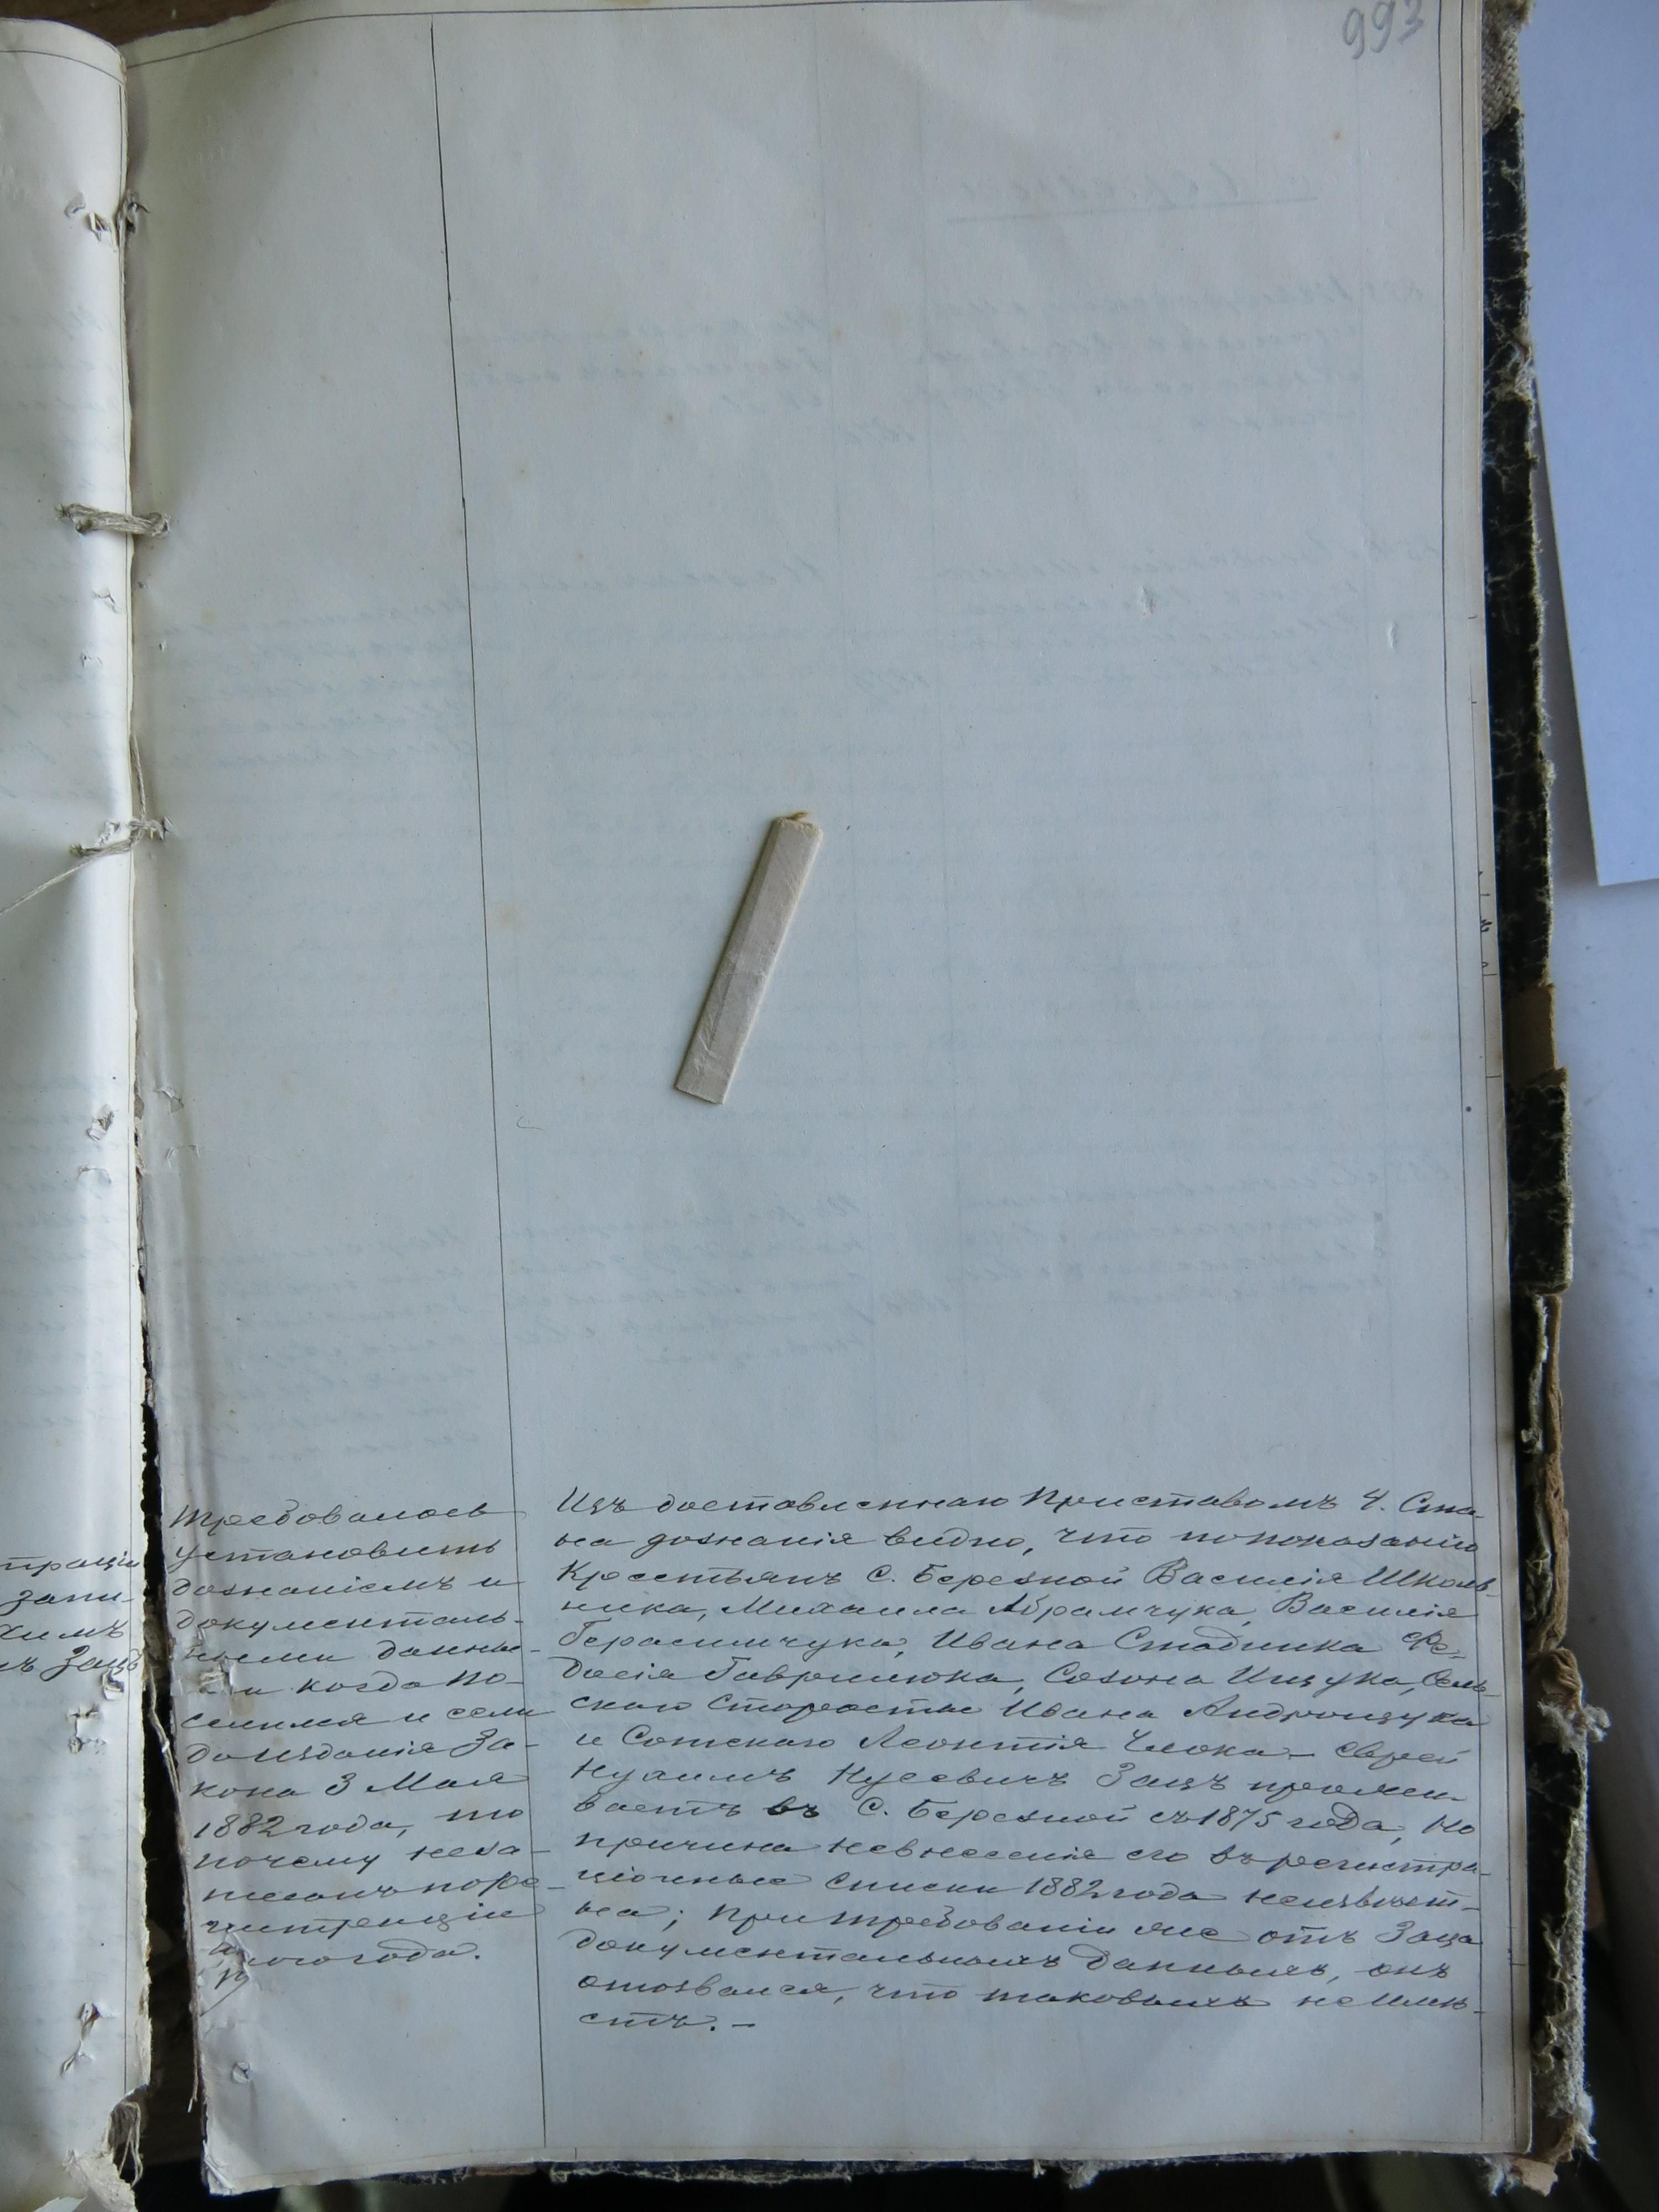 993
Требовалось
установить
дознаніемъ и
документаль-
ными данны-
когда по-
селился и если
до изданія За-
кона 3 Мая
1882 года, то
почему неза-
писанъ по ре-
гистраціи
того года.
Изъ доставленнаго Приставомъ 4. Ста-
на дознанія видно, что по показанію
Крестьянъ С. Березной Василія Школь-
ника, Михаила Абрамчука, Василія
Герасимчука, Ивана Стадника Фе-
досія Гаврилюка, Созона Ищука, Сель-
скаго Старосты Ивана Андрощука
и Сотскаго Леонтія еврей
Нухимъ Нусевичъ Зацъ прожи-
ваетъ въ С. Березной съ 1875 года, Но
причина невнесенія его въ регистра-
ціонные списки 1882 года неизвѣст-
на; При требованіи же отъ Заца
документальныхъ данныхъ, онъ
отозвался, что таковыхъ не имѣ-
етъ. —
траціи
запи-
химъ
ъ Зацъ